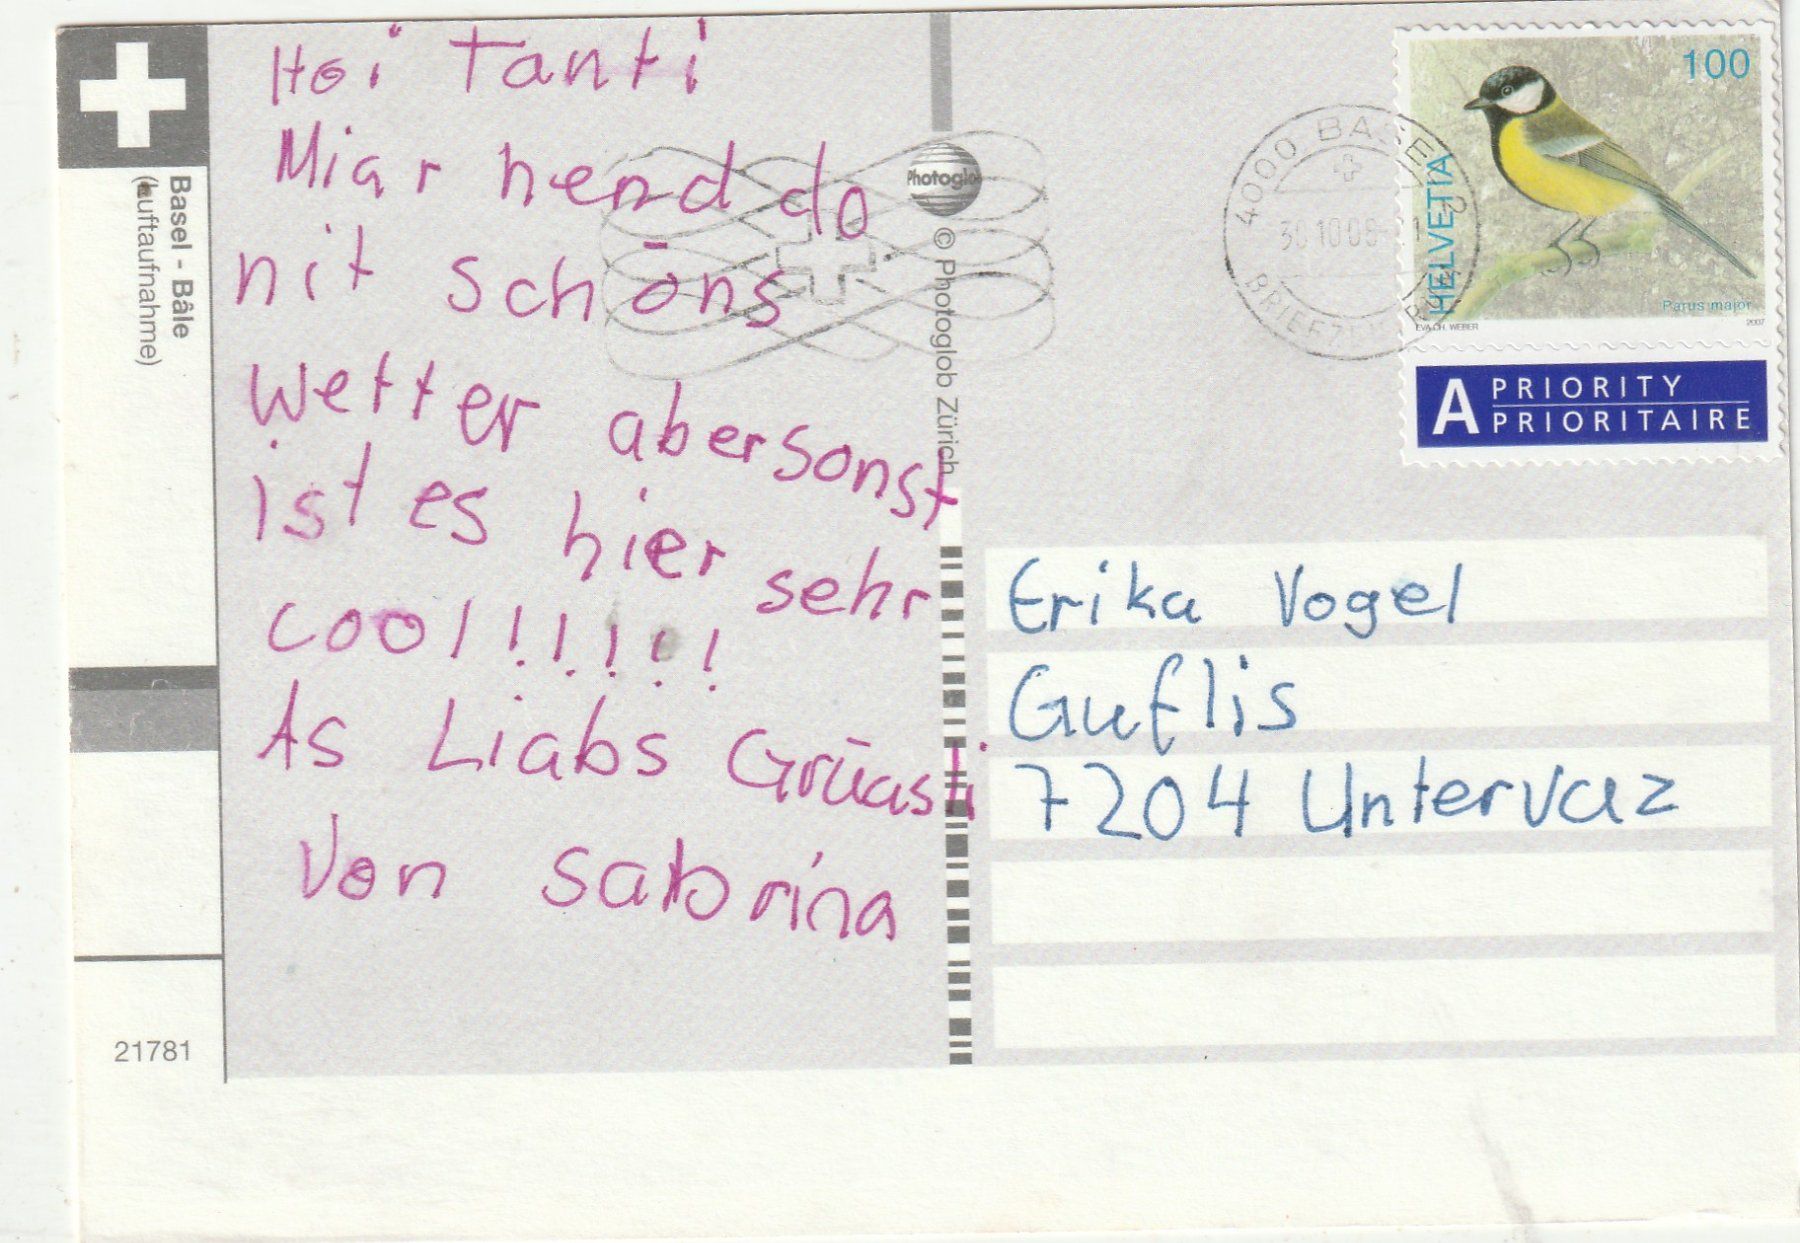 Hoi Tanti
Miar hend do
nit schöns
wetter aber sonst
ist es hier sehr
cool!!!!!!
As Liabs Grüasli
Von Sabrina
Basel - Bâle
(Luftaufnahme)
21781
Photoglob
© Photoglob Zürich
4000 BASEL 2
30.10.08
100
HELVETIA
Parus major
EVA CH. WEBER
2007
A PRIORITY
PRIORITAIRE
Erika Vogel
Guflis
7204 Untervaz